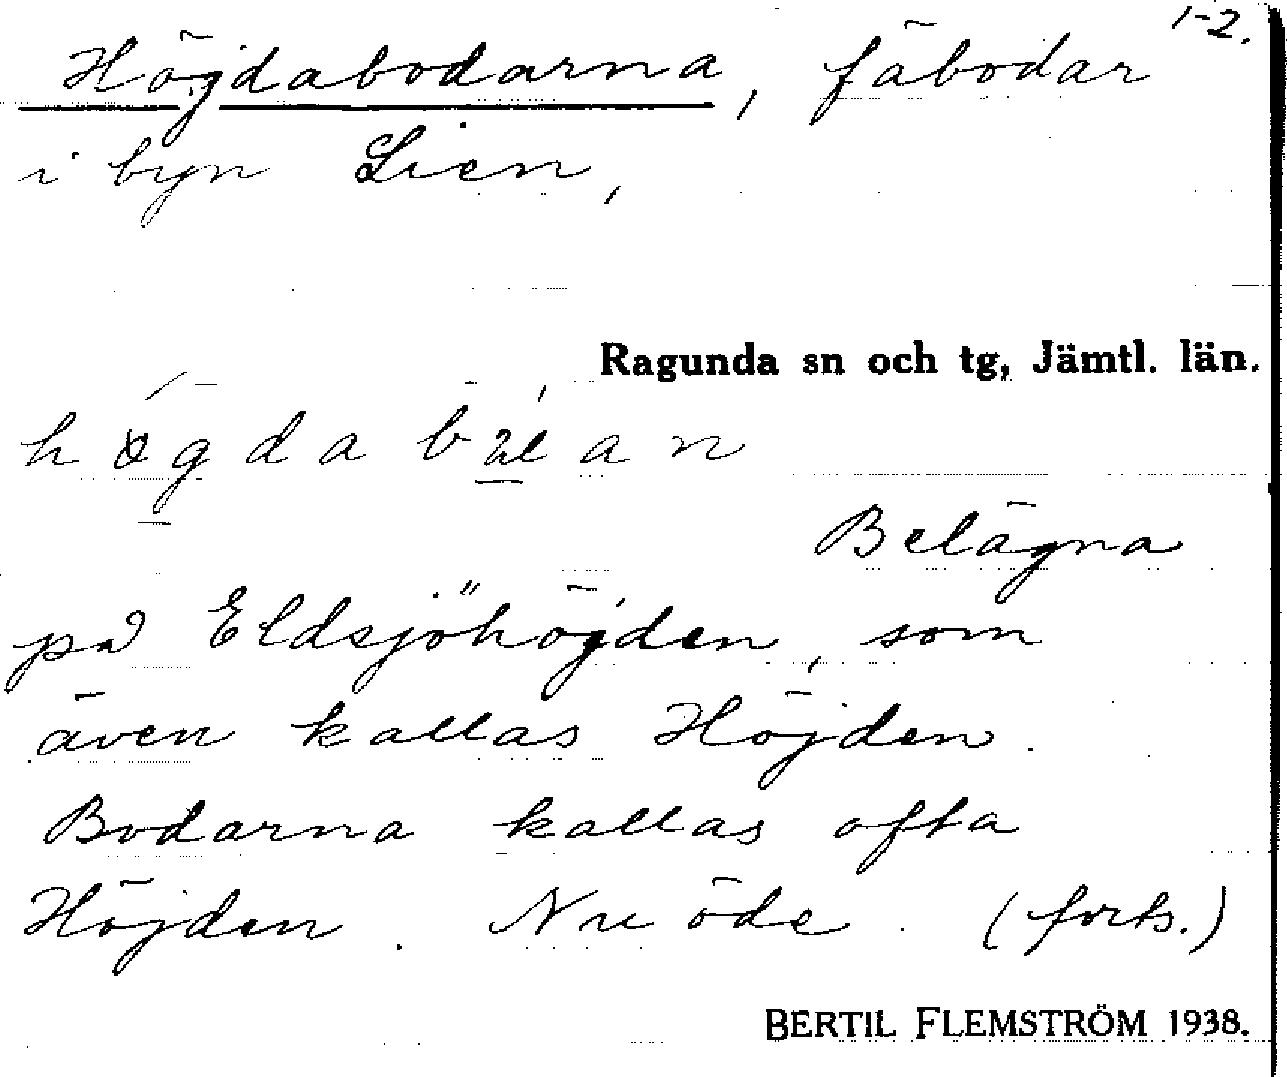 1-2.
Högdabodarna, fäbodar
i byn Lien,
Ragunda sn och tg, Jämtl. län.
Belägna
på Eldsjöhöjden, som
även kallas Höjden.
Bodarna kallas ofta
Höjden. Nu öde. (forts.)
BERTIL FLEMSTRÖM 1938.